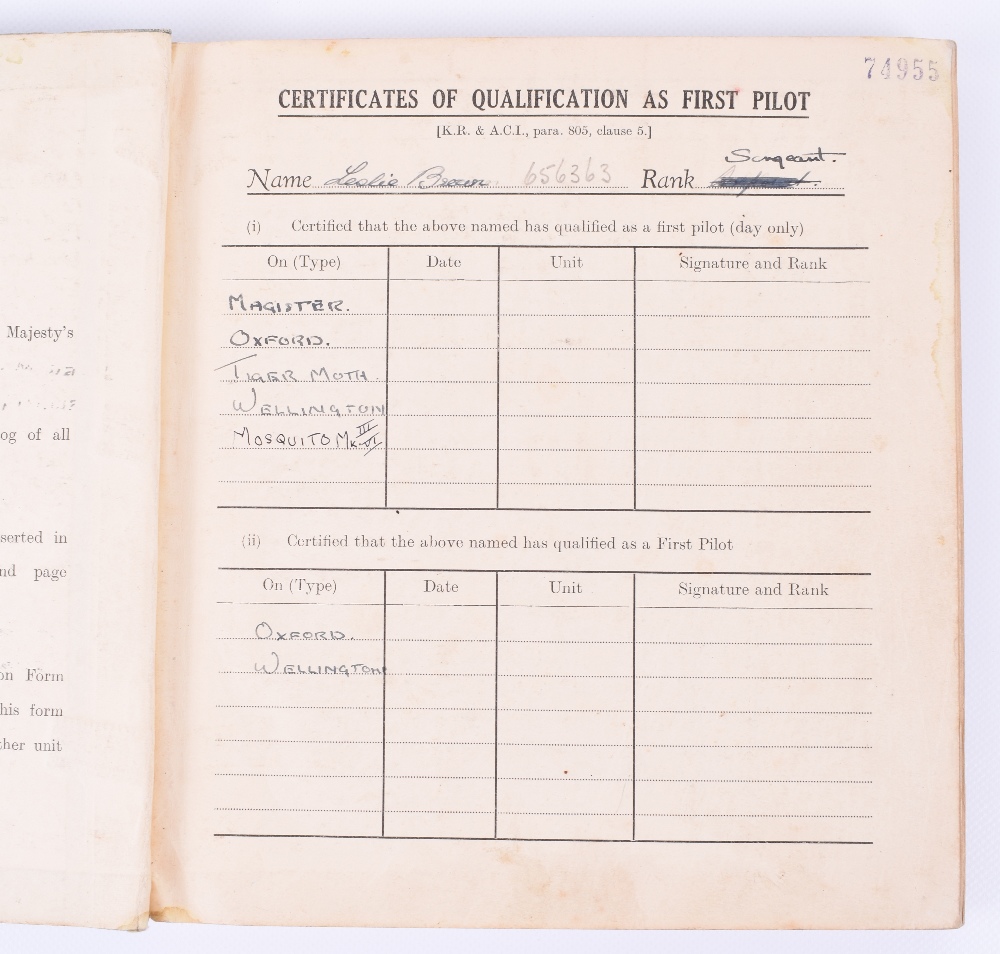 74955
CERTIFICATES OF QUALIFICATION AS FIRST PILOT
[K.R. & A.C.I., para. 805, clause 5.]
Name Leslie Brown 656363 Rank Sergeant.
(i) Certified that the above named has qualified as a first pilot (day only)
On (Type) Date Unit Signature and Rank
MAGISTER.
OXFORD.
TIGER MOTH.
WELLINGTON
MOSQUITO MK III VI
(ii) Certified that the above named has qualified as a First Pilot
On (Type) Date Unit Signature and Rank
OXFORD.
WELLINGTON
Majesty's
og of all
serted in
nd page
on Form
his form
ther unit